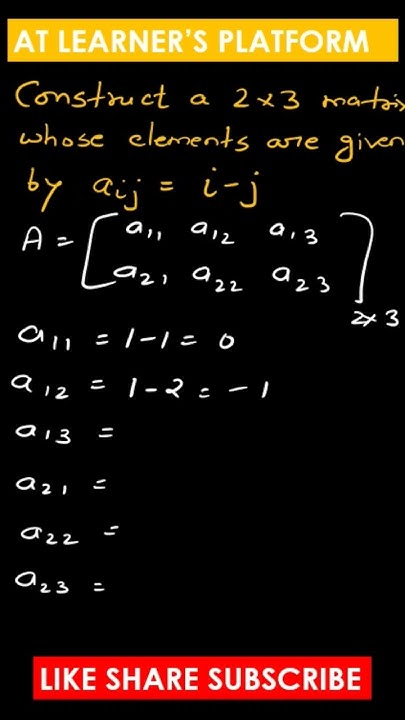 AT LEARNER'S PLATFORM
Construct a 2×3 matrix
whose elements are given
by aij = i-j
A = [ a11 a12 a13
a21 a22 a23 ] 2×3
a11 = 1-1 = 0
a12 = 1-2 = -1
a13 =
a21 =
a22 =
a23 =
LIKE SHARE SUBSCRIBE